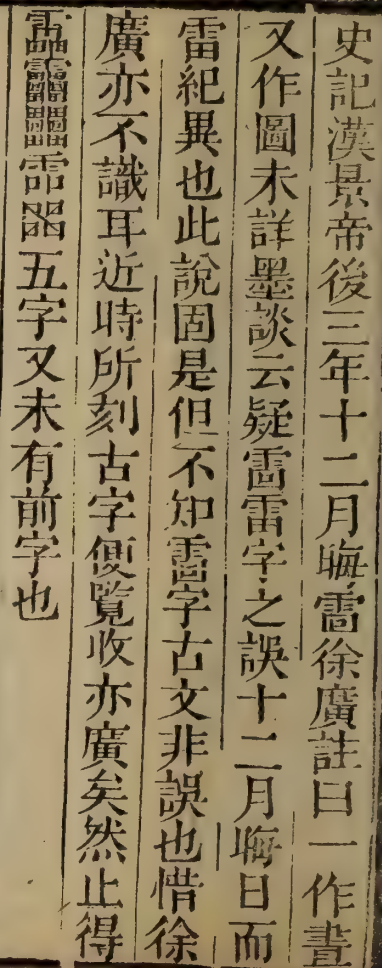 史記漢景帝後三年十二月晦䨓徐廣註曰一作晝
又作圖未詳墨談云疑䨓雷字之誤十二月晦日而
雷紀異也此說固是但不知䨓字古文非誤也惜徐
廣亦不識耳近時所刻古字便覽收亦廣矣然止得
五字又未有前字也